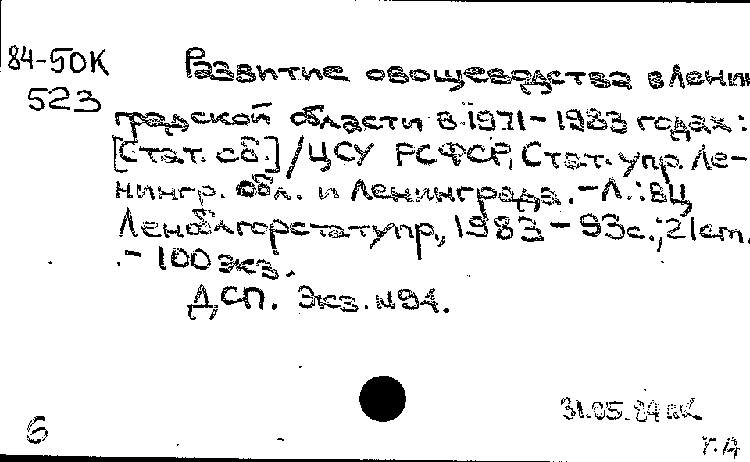 84-50К
523
Развитие овощеводства в Ленин
градской области в 1971-1983 годах:
[Стат. сб.] / ЦСУ РСФСР, Стат. упр. Ле-
нингр. обл. и Ленинграда. - Л.: ВЦ
Леноблгорстатупр., 1983 - 93 с.; 21 cm.
- 100 экз.
ДСП. Экз. N94.
31.05.84 пК
6
т.А